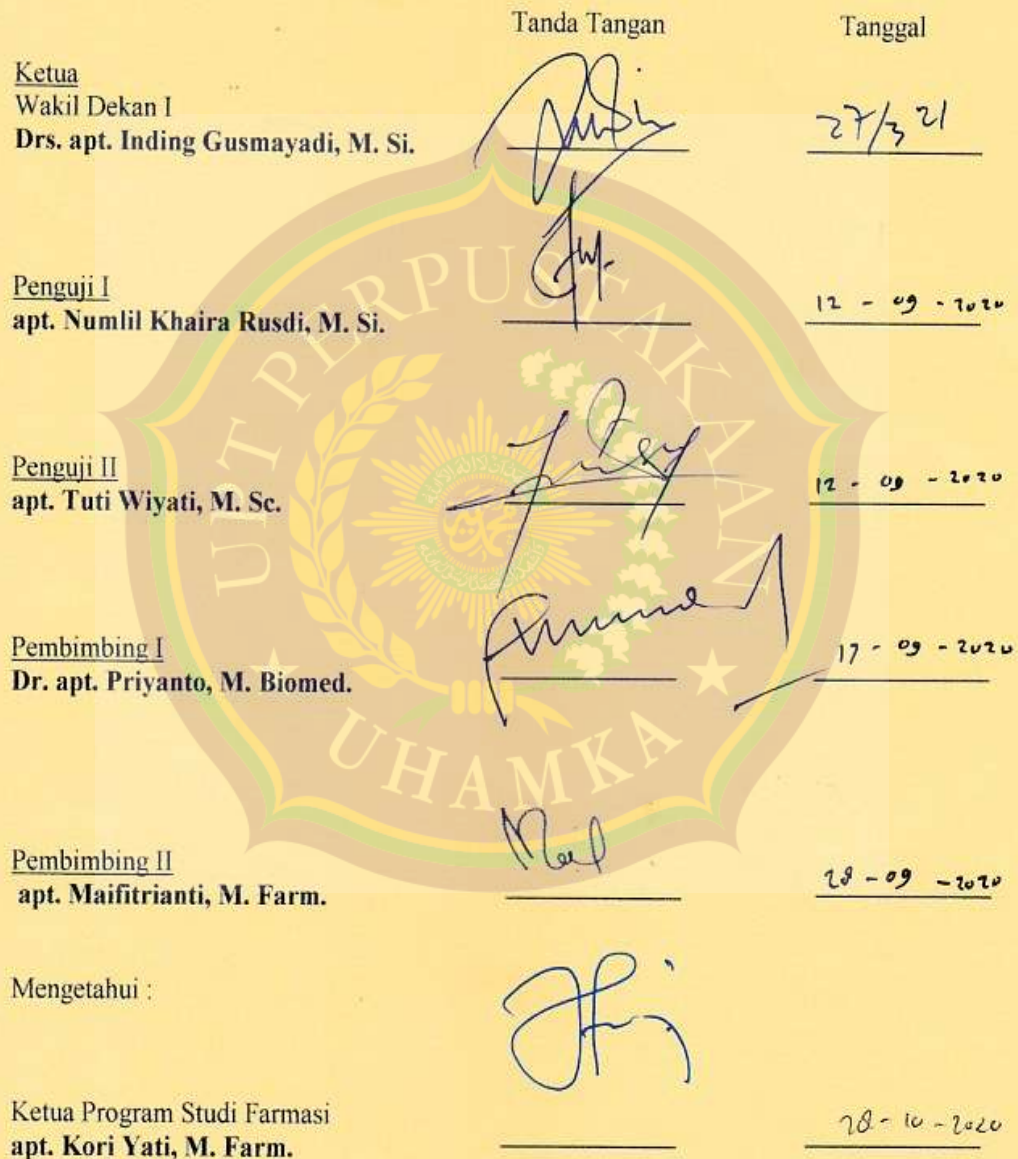 Tanda Tangan Tanggal
Ketua
Wakil Dekan I
Drs. apt. Inding Gusmayadi, M. Si.
27/3 21
Penguji I
apt. Numlil Khaira Rusdi, M. Si.
12 - 09 - 2020
Penguji II
apt. Tuti Wiyati, M. Sc.
12 - 09 - 2020
Pembimbing I
Dr. apt. Priyanto, M. Biomed.
17 - 09 - 2020
Pembimbing II
apt. Maifitrianti, M. Farm.
28 - 09 - 2020
Mengetahui :
Ketua Program Studi Farmasi
apt. Kori Yati, M. Farm.
28 - 10 - 2020
UPT PERPUSTAKAAN
UHAMKA